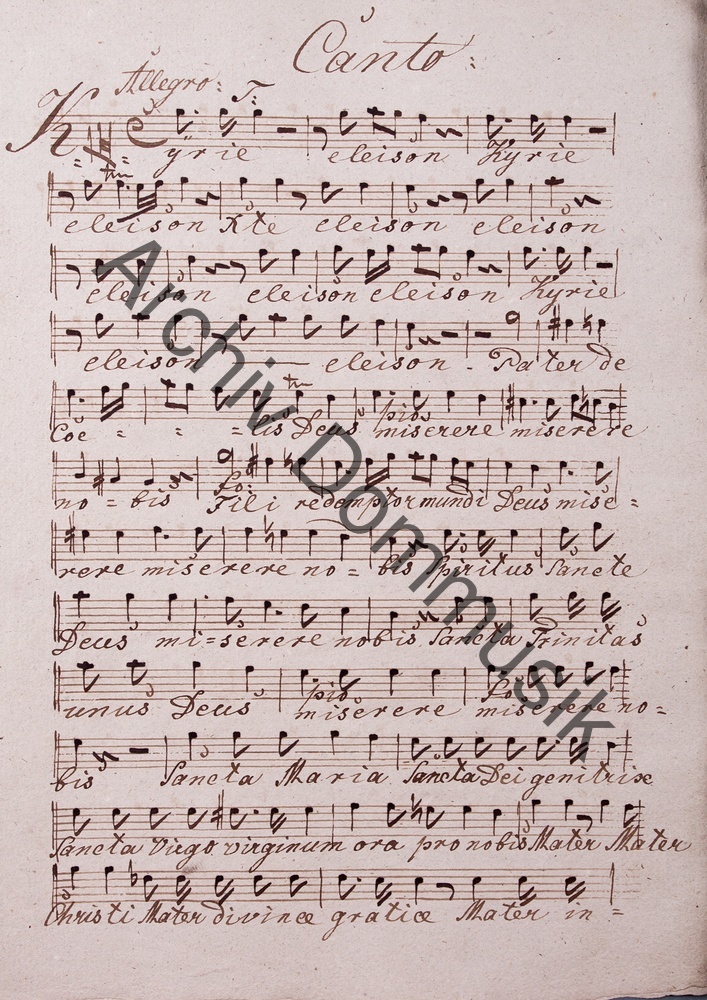 Canto:
Allegro: T:
Kyrie eleison Kyrie
eleison Xte eleison eleison
eleison eleison eleison Kyrie
eleison — eleison. Pater de
Coe = = = lis Deus pia miserere miserere
no = bis Fo: Fili redemptor mundi Deus mise =
rere miserere no = bis Spiritus Sancte
Deus mi = serere nobis Sancta Trinitas
unus Deus pia miserere Fo: miserere no =
bis Sancta Maria Sancta Dei genitrix
Sancta Virgo virginum ora pro nobis Mater Mater
Christi Mater divinæ gratiæ Mater in =
Archiv Dommusik